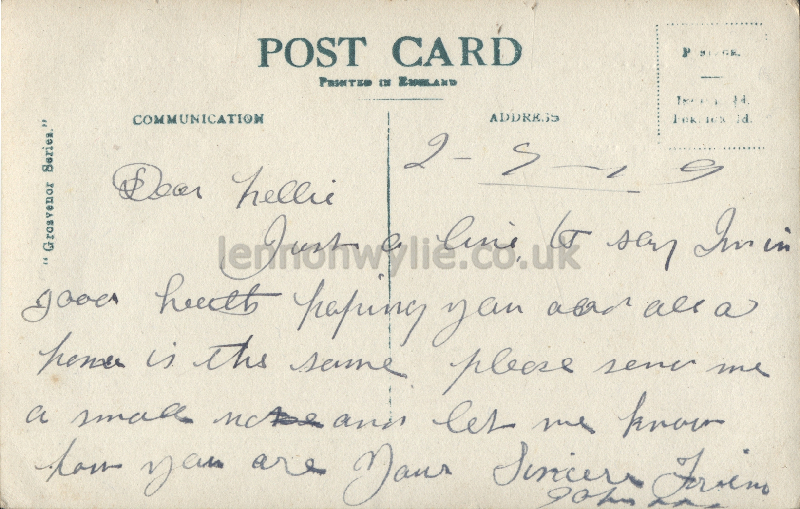 POST CARD
PRINTED IN ENGLAND
COMMUNICATION
ADDRESS
POSTAGE.
"Grosvenor Series."
2-9-19
Dear Nellie
Just a line to say I'm in
good health hoping you and all a
home is the same please send me
a small note and let me know
how you are Your Sincere Friend
John
lennonwylie.co.uk